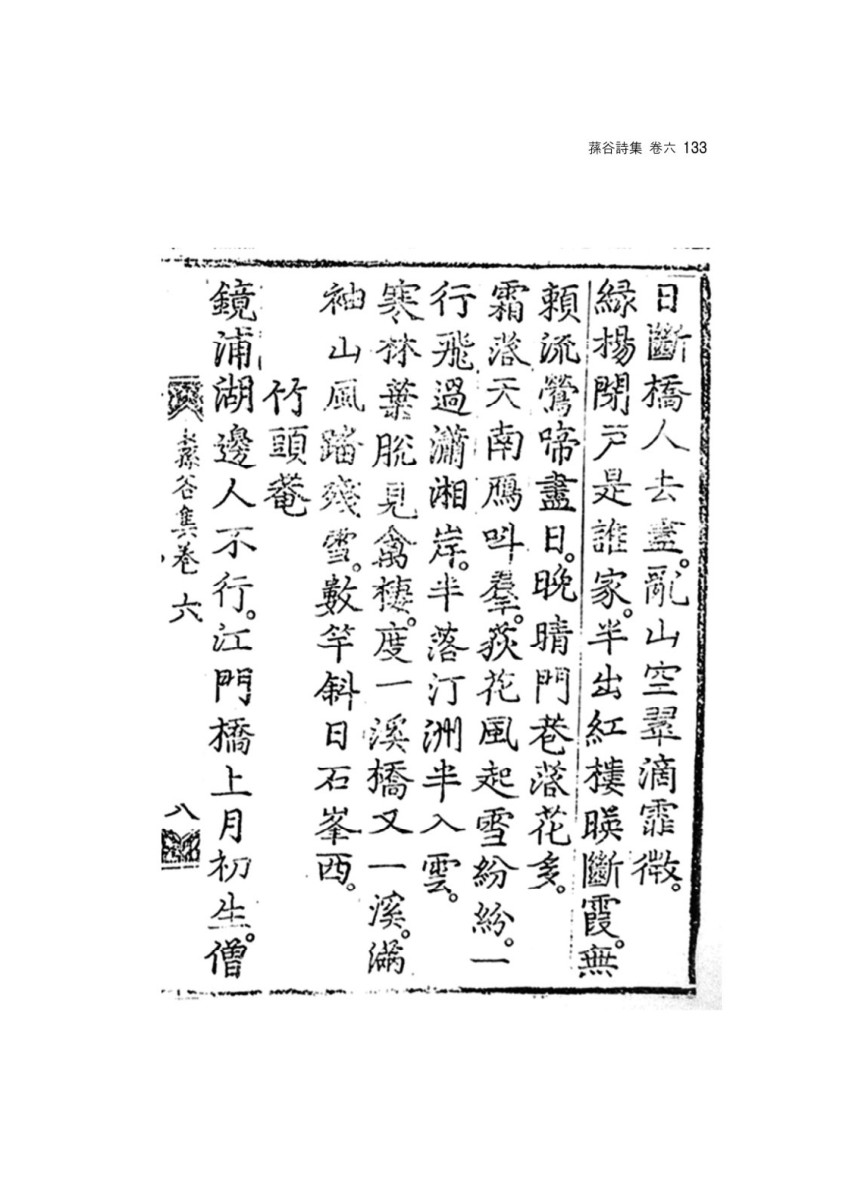 蓀谷詩集 卷六 133
日斷橋人去盡。亂山空翠滴霏微。
綠楊閉戶是誰家。半出紅樓暎斷霞。無
賴流鶯啼盡日。晚晴門巷落花多。
霜落天南鴈叫羣。荻花風起雪紛紛。一
行飛過瀟湘岸。半落汀洲半入雲。
寒林葉脫見禽棲。度一溪橋又一溪。滿
袖山風踏殘雪。數竿斜日石峯西。
竹頭菴
鏡浦湖邊人不行。江門橋上月初生。僧
蓀谷集卷六
八